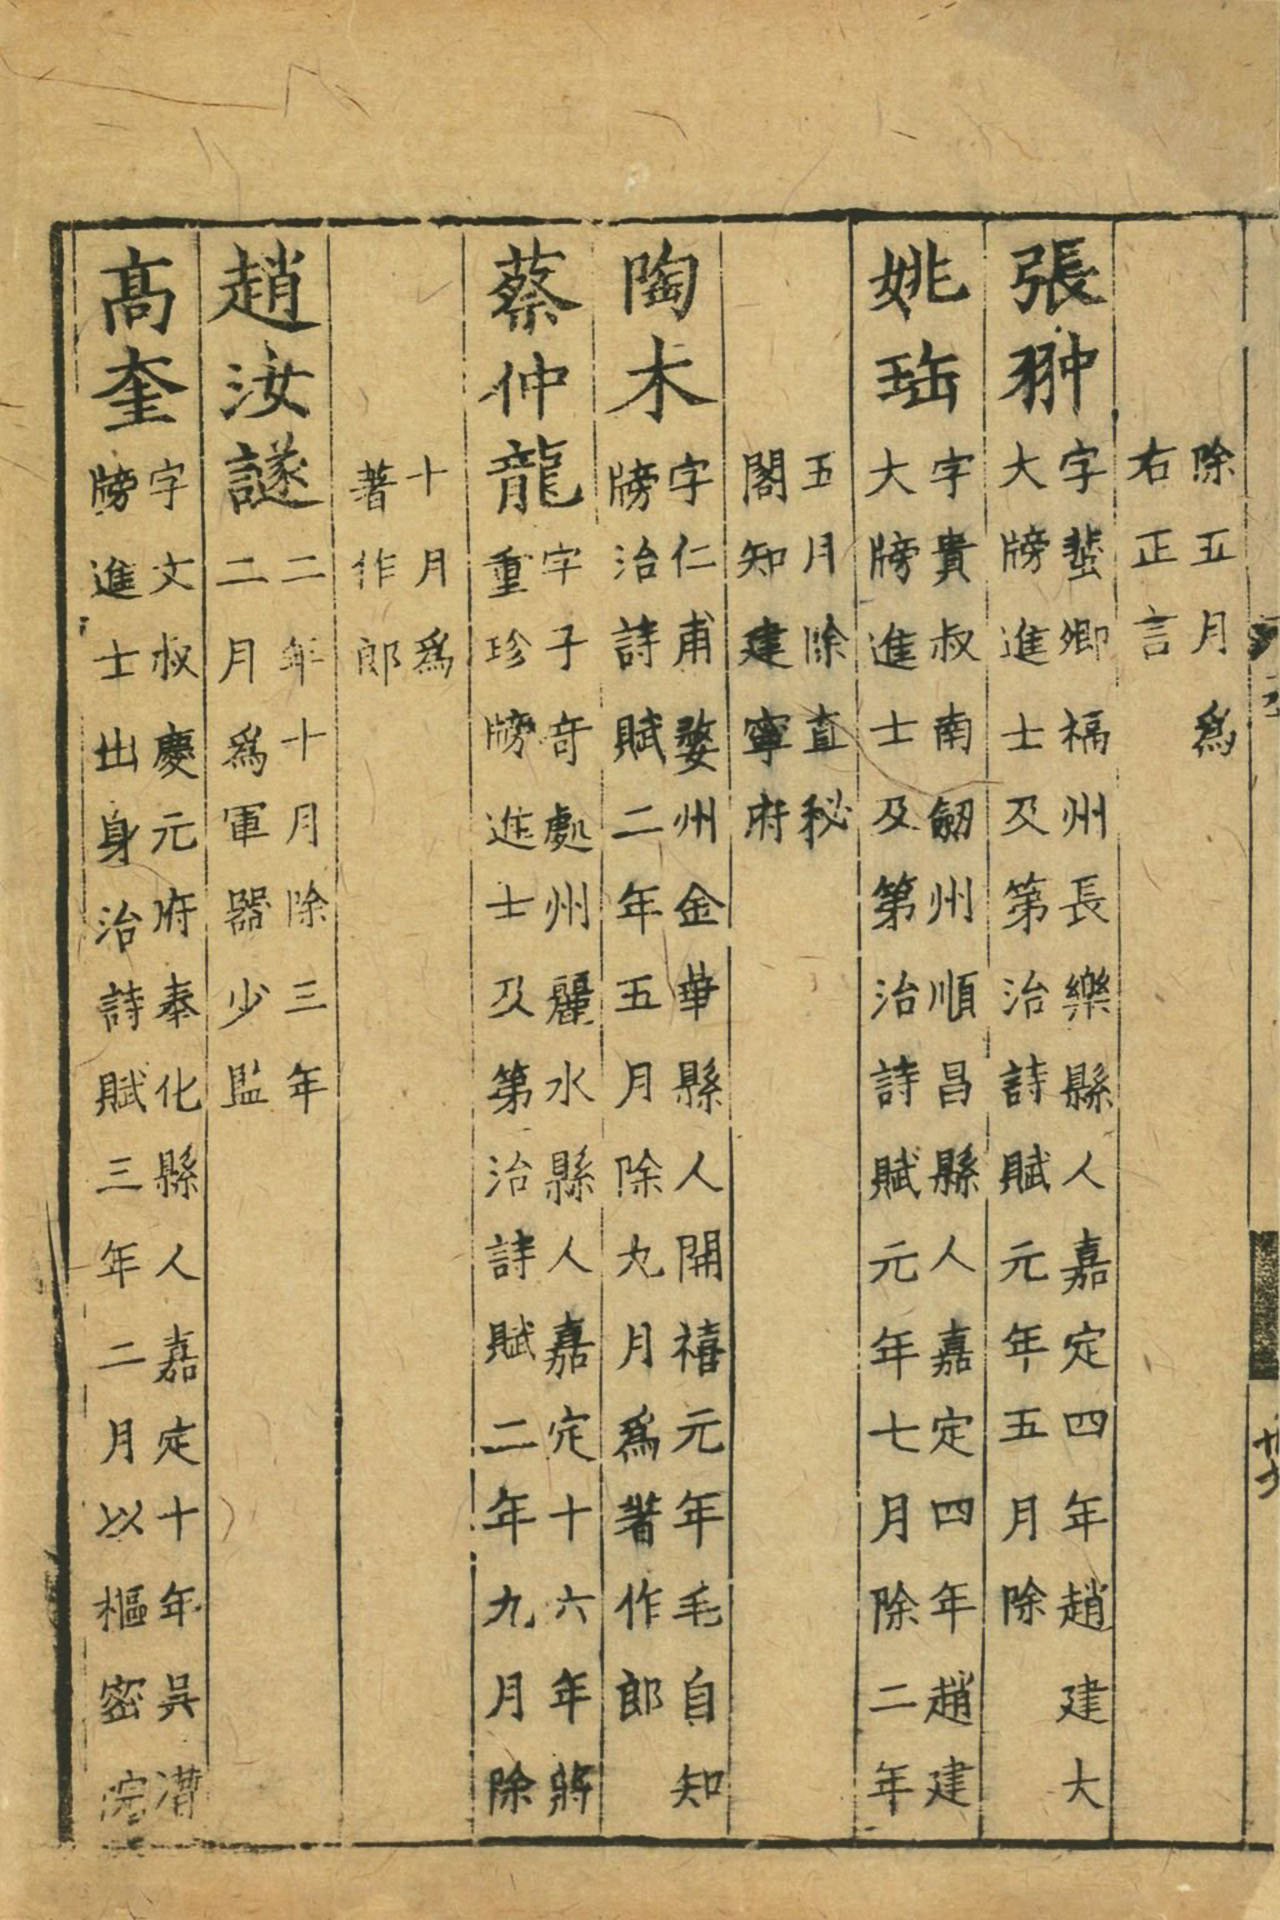 除五月爲
右正言
張翀
字蜚卿福州長樂縣人嘉定四年趙建大
大牓進士及第治詩賦元年五月除
姚珤
字貴叔南劒州順昌縣人嘉定四年趙建
大牓進士及第治詩賦元年七月除二年
五月除直秘
閣知建寧府
陶木
字仁甫婺州金華縣人開禧元年毛自知
牓治詩賦二年五月除九月爲著作郎
蔡仲龍
字子奇處州麗水縣人嘉定十六年蔣
重珍牓進士及第治詩賦二年九月除
十月爲
著作郎
趙汝𧫷
二年十月除三年
二月爲軍器少監
高奎
字文叔慶元府奉化縣人嘉定十年吳潛
牓進士出身治詩賦三年二月以樞密院